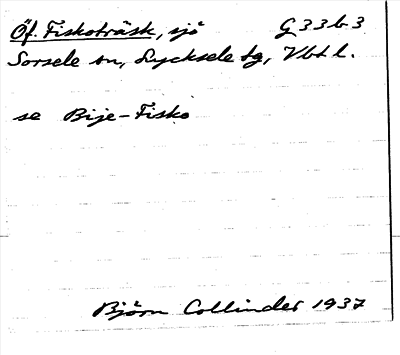 Öf. Fiskoträsk, sjö G33b3
Sorsele sn, Lycksele tg, Vbtl.
se Bije-Fisko
Björn Collinder 1937